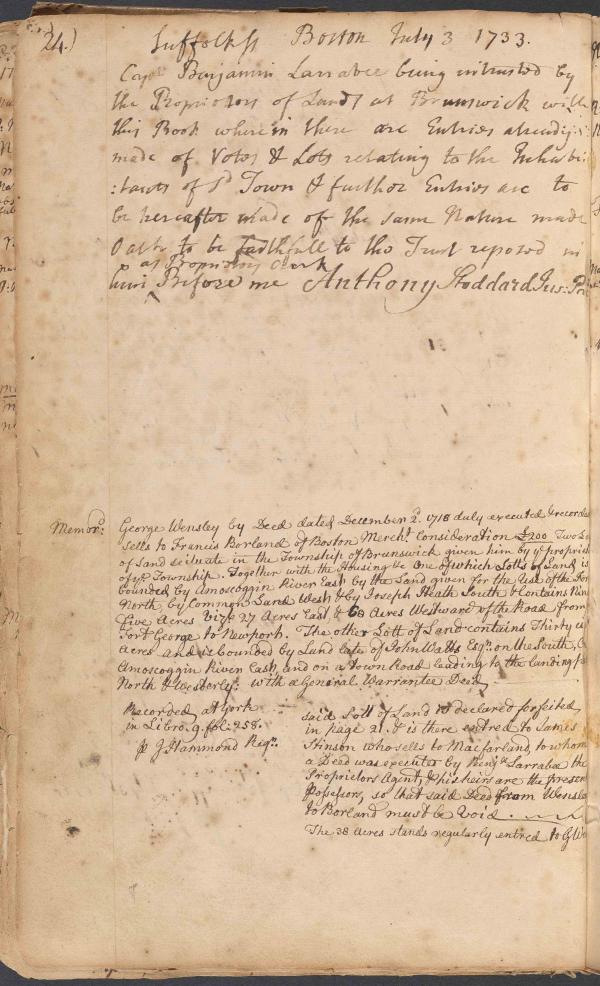 24.)
Suffolk ss Boston July 3 1733.
Capt Benjamin Larrabee being intrusted by
the Propriotors of Lands at Brunswick with
this Book wherein there are Entries already
made of Votes & Lots relating to the Inhabi:
:tants of sd Town & further Entries are to
be hereafter made of the same Nature made
Oath to be faithfull to the Trust reposed in
as Propriotors Clerk
him Before me Anthony Stoddard Jus: Pac
Memord:
George Wensley by Deed dated December 2d. 1718 duly executed & recorded
sells to Francis Borland of Boston Mercht Consideration £200 Two Lo
of Land scituate in the Township of Brunswick given him by ye propriet
of ye Township. Together with the Housing &c One of which Lotts of Land is
bounded by Amoscoggin River East by the Land given for the Use of the For
North, by Common Land West & by Joseph Heath South & Contains Nine
Five Acres Vizt 27 Acres East & 68 Acres Westward of the Road from
Fort George to Newport. The other Lott of Land contains Thirty ei
Acres and is bounded by Land late of John Watts Esqr: on the South,
Amoscoggin River East, and on a town Road leading to the landing
North & Westerly: with a General Warrantee Deed,
Recorded, at York
in Libro. 9. fol. 258.
p J Hammond Regr.
said Lott of Land is declared forfeited
in page 21. & is there entred to James
Stinson who sells to Macfarland, to whom
a Deed was executed by Benja Larrabee the
Proprietors Agent, & his heirs are the presen
Possessors, so that said Deed from Wensle
to Borland must be Void.
The 38 Acres stands regularly entred to G We